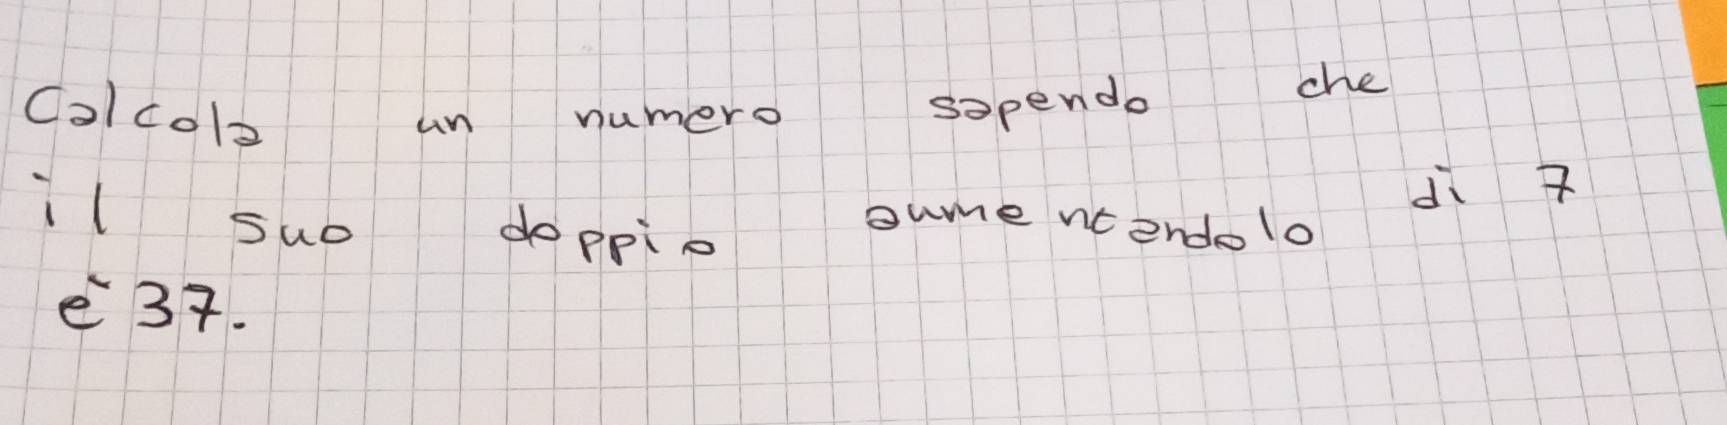 Calcola un numero sapendo che
il suo doppio aumentandolo di 7
è 37.